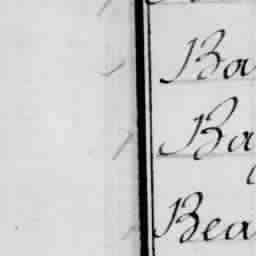 Ba
Ba
Bea